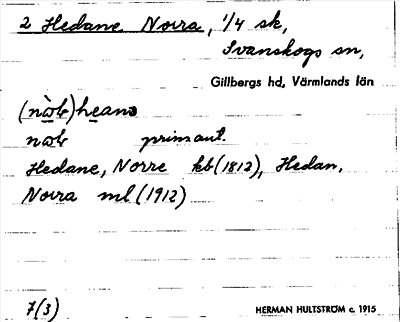 2 Hedane Norra, 1/4 sk,
Svanskogs sn,
Gillbergs hd, Värmlands län
primaut.
Hedane, Norre kb(1812), Hedan,
Norra ml(1912)
7(3)
HERMAN HULTSTRÖM c. 1915